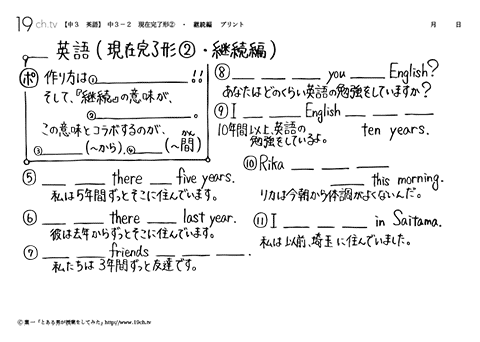 19 ch.tv 【中3 英語】 中3-2 現在完了形② ・ 継続編 プリント 月 日
英語(現在完了形②・継続編)
ポ 作り方は① !!
そして、『継続』の意味が、
② 。
この意味とコラボするのが、
③ (〜から)、④ (〜間)
かん
⑤ there five years.
私は5年間ずっとそこに住んでいます。
⑥ there last year.
彼は去年からずっとそこに住んでいます。
⑦ friends .
私たちは3年間ずっと友達です。
⑧ you English?
あなたはどのくらい英語の勉強をしていますか?
⑨ I English
ten years.
10年間以上、英語の
勉強をしているよ。
⑩ Rika
this morning.
リカは今朝から体調がよくないんだ。
⑪ I in Saitama.
私は以前、埼玉に住んでいました。
© 葉一「とある男が授業をしてみた」 http://www.19ch.tv